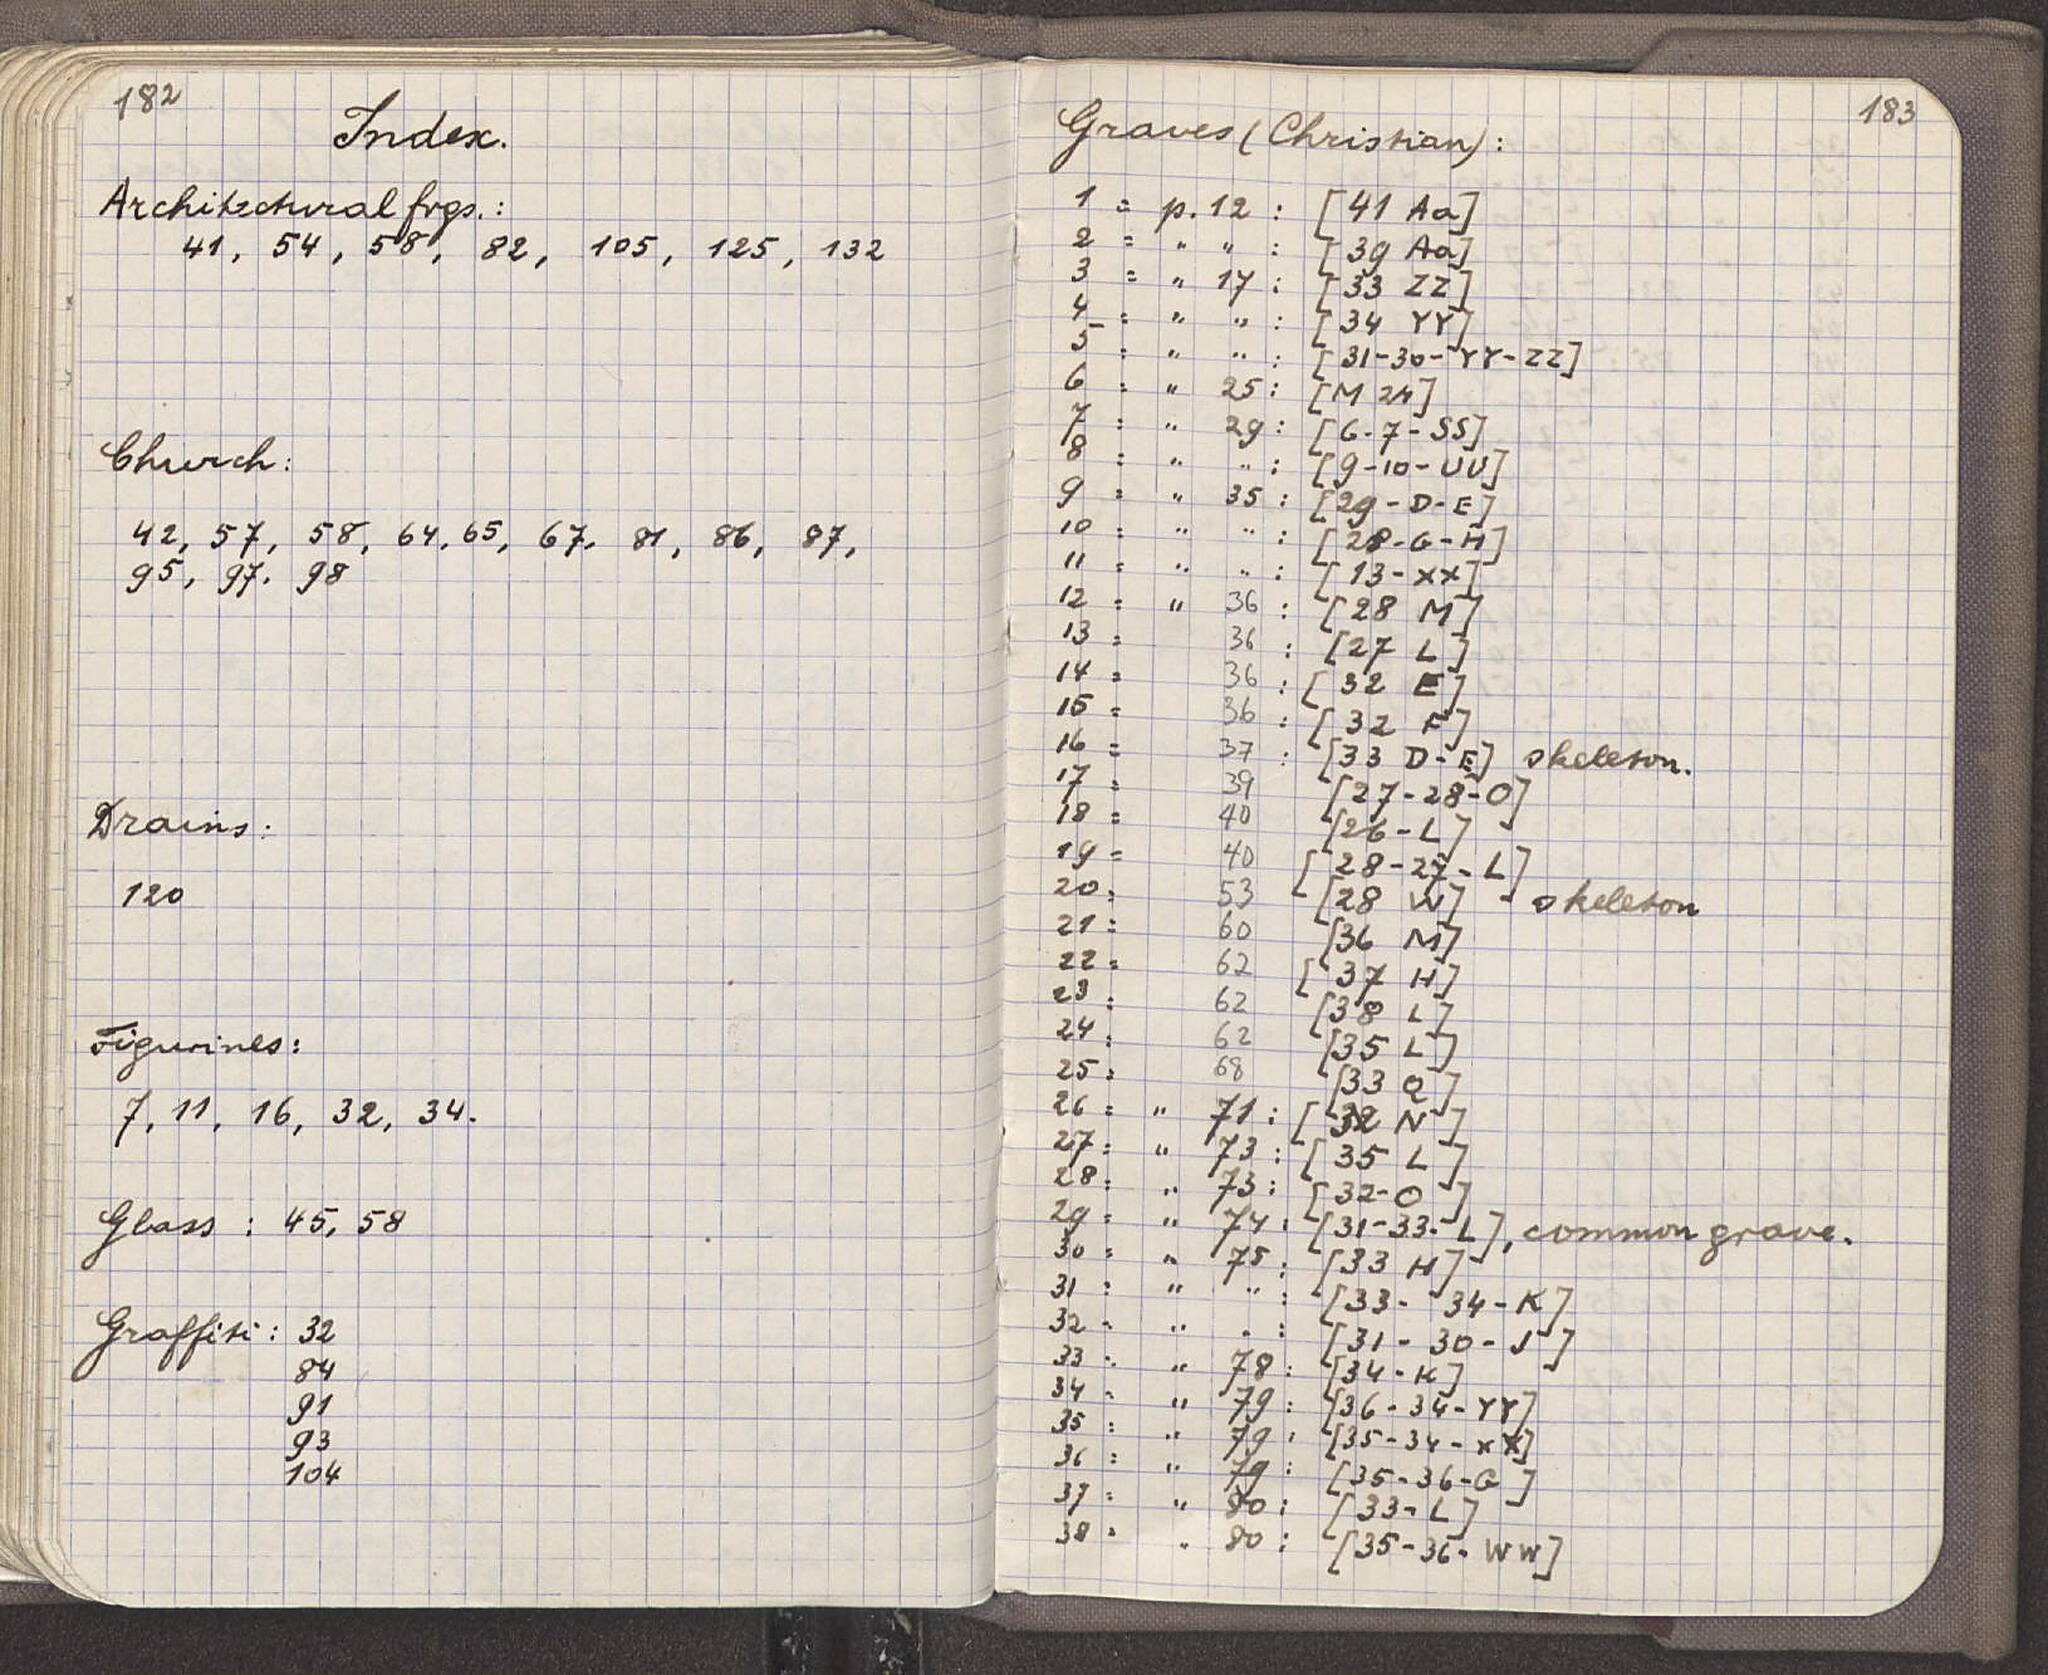 182
Index.
Architectural frgs.:
41, 54, 58, 82, 105, 125, 132
Church:
42, 57, 58, 64, 65, 67, 81, 86, 87,
95, 97, 98
Drains:
120
Figurines:
7, 11, 16, 32, 34.
Glass : 45, 58
Graffiti : 32
84
91
93
104
183
Graves (Christian) :
1 = p. 12 : [41 Aa]
2 = " " : [39 Aa]
3 = " 17 : [33 ZZ]
4 = " " : [34 YY]
5 = " " : [31-30-YY-ZZ]
6 = " 25 : [M 24]
7 = " 29 : [6-7-SS]
8 = " " : [9-10-UU]
9 = " 35 : [29-D-E]
10 = " " : [28-G-H]
11 = " " : [13-XX]
12 = " 36 : [28 M]
13 = 36 : [27 L]
14 = 36 : [32 E]
15 = 36 : [32 F]
16 = 37 : [33 D-E] skeleton.
17 = 39 [27-28-O]
18 = 40 [26-L]
19 = 40 [28-27-L]
20 = 53 [28 W] skeleton
21 = 60 [36 M]
22 = 62 [37 H]
23 = 62 [38 L]
24 = 62 [35 L]
25 = 68 [33 Q]
26 = " 71 : [32 N]
27 = " 73 : [35 L]
28 = " 73 : [32-O]
29 = " 74 : [31-33-L], common grave.
30 = " 75 : [33 H]
31 = " " : [33-34-K]
32 = " " : [31-30-J]
33 = " 78 : [34-K]
34 = " 79 : [36-34-YY]
35 = " 79 : [35-34-XX]
36 = " 79 : [35-36-G]
37 = " 80 : [33-L]
38 = " 80 : [35-36-WW]